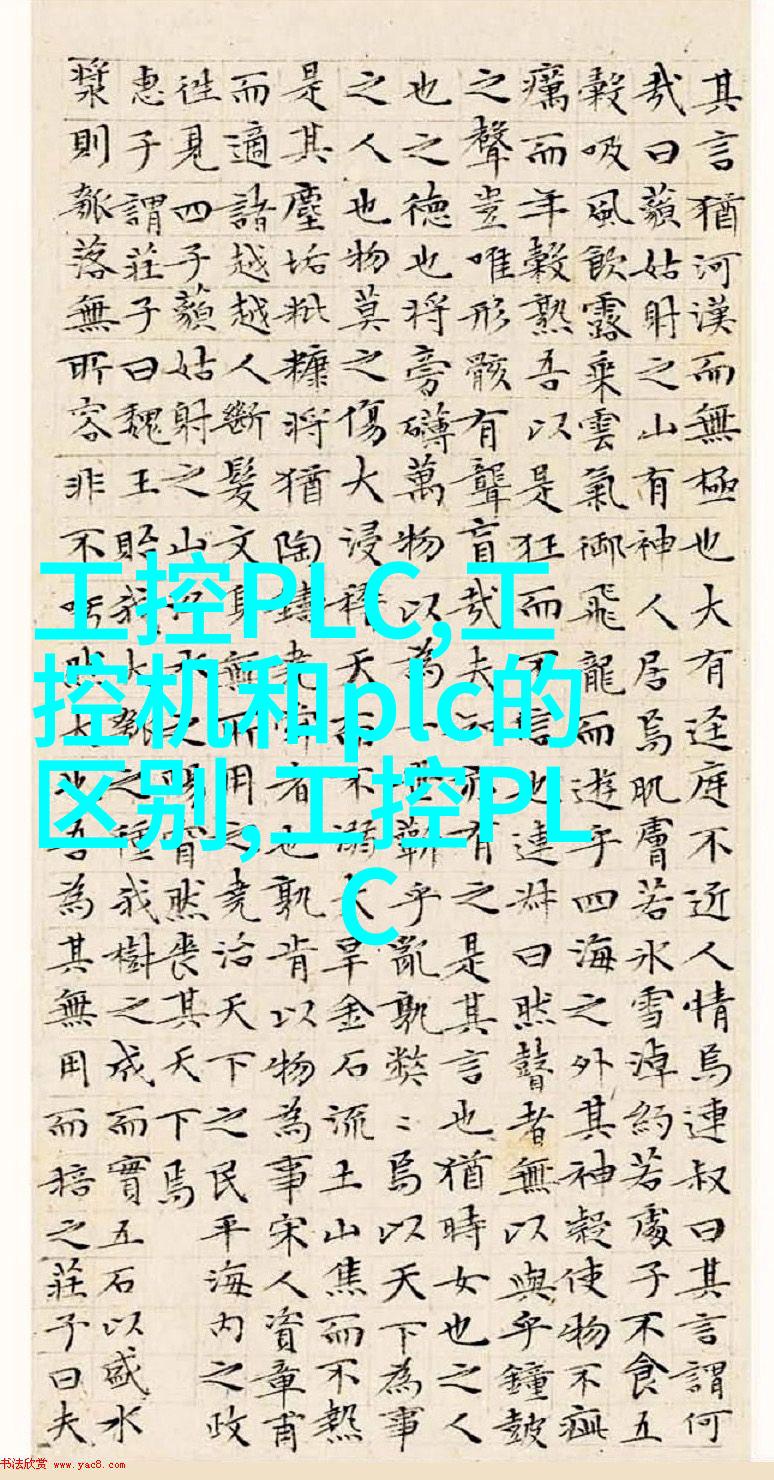 其言猶河漢而無極也大有逕庭不近人情焉連叔曰其言謂何
哉曰藐姑射之山有神人居焉肌膚若冰雪淖約若處子不食五
穀吸風飲露乘雲氣御飛龍而遊乎四海之外其神凝使物不疵
癘而年穀熟吾以是狂而不信也連叔曰然瞽者無以與乎鐘鼓
之聲豈唯形骸有聾盲哉夫知亦有之是其言也猶時女也之人
也之德也將旁礴萬物以為一世蘄乎亂孰弊〻焉以天下為事
之人也物莫之傷大浸稽天而不溺大旱金石流土山焦而不熱
是其塵垢粃糠將猶陶鑄堯舜者也孰肯以物為事宋人資章甫
而適諸越越人斷髮文身無所用之堯治天下之民平海内之政
往見四子藐姑射之山汾水之陽窅然喪其天下焉
惠子謂莊子曰魏王貽我大瓠之種我樹之成而實五石以盛水
漿則瓠落無所容非不呺然大也吾為其無用而掊之莊子曰夫
工控PLC,工
控机和plc的
区别,工控PL
C
书法欣赏 www.yac8.com